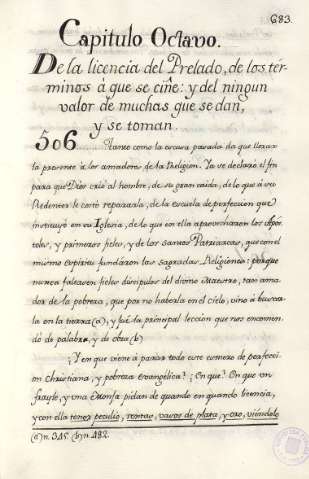 683.
Capitulo Octavo.
De la licencia del Prelado, de los tér-
minos á que se ciñe: y del ningun
valor de muchas que se dan,
y se toman.
506. como la excusa pasada da que llorar
la presente á los amadores de la Religion. Ya ve declaró el fin
para que Dios crió al hombre, de su gran caida, de lo que á su
Redentor le costó repararla, de la escuela de perfeccion que
instituyó en su Iglesia, de lo que en ella aprovecharon los Após-
toles, y primeros fieles, y de los santos Patriarcas, que con el
mismo espiritu fundaron las sagradas Religiones: porque
nunca faltasen fieles discipulos del divino Maestro, tan ama-
dor de la pobreza, que por no haberla en el cielo, vino á buscar-
la en la tierra (a), y fué la principal lección que nos encomen-
dó de palabra, y de obra (b)
¿Y en que viene á parar todo este esmero de perfecci-
on Christiana, y pobreza evangélica? ¿En que? En que un
frayle, y una Monja pidan de quando en quando licencia,
y con ella tener peculio, rentas, vasos de plata, y oro, viéndolo
(a) n. 345. (b) n. 482.